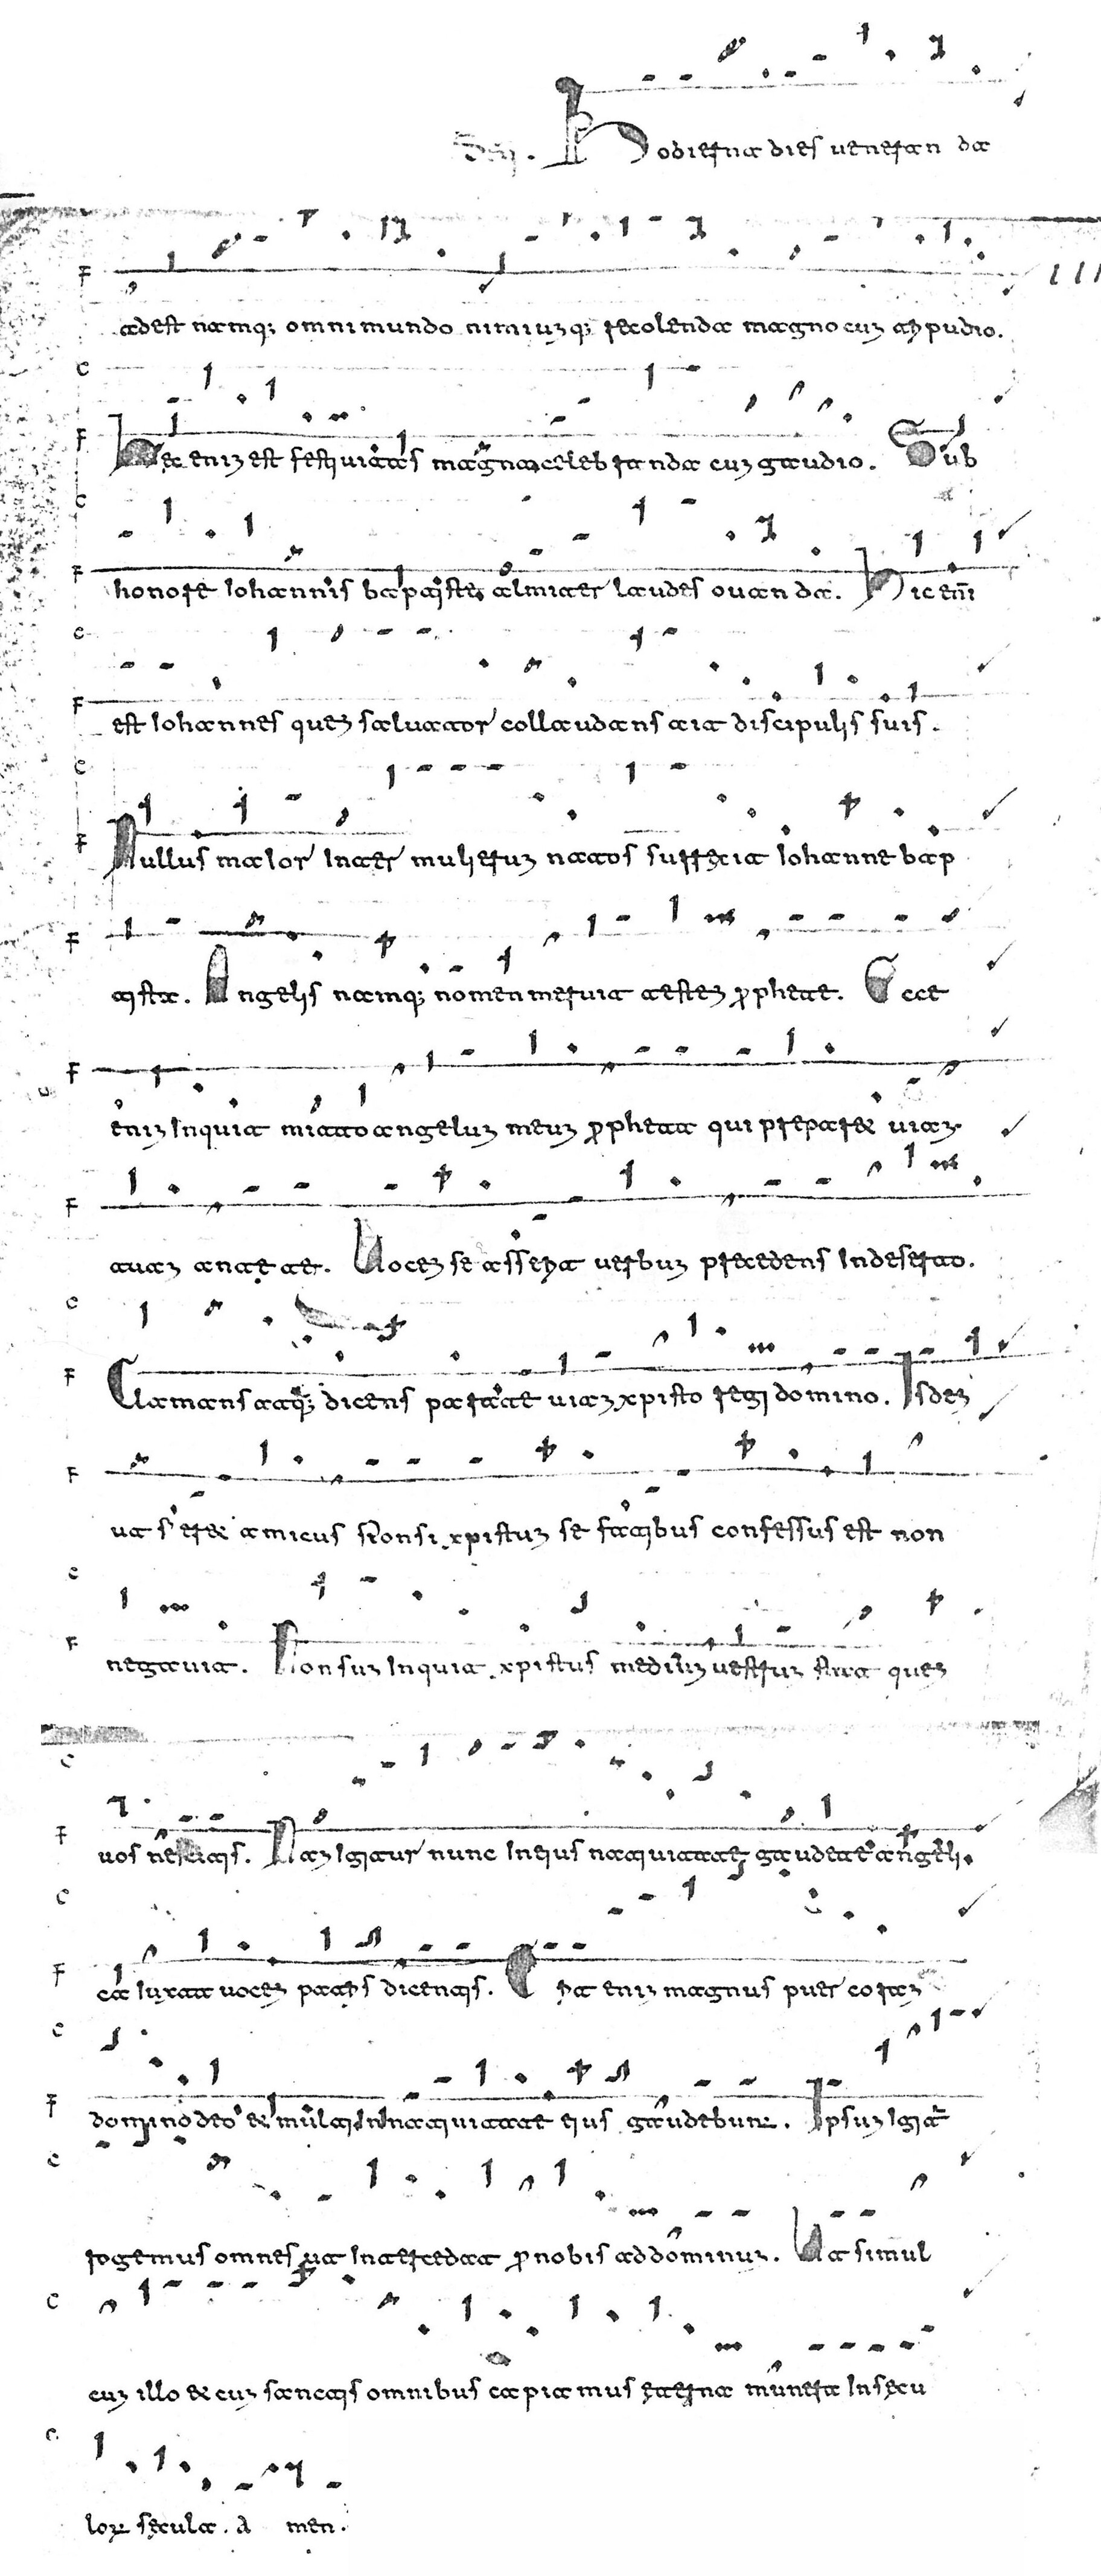 Hodierna dies ueneran da
adest namq; omni mundo nimiuzq; recolenda magno cuz tripudio.
Hec eniz est festiuitas magna celebranda cuz gaudio. Sub
honore Iohannis baptiste almiter laudes ouan da. Hic eni
est Iohannes quez saluator collaudans ait discipulis suis.
Nullus maior Inter mulieruz natos surrexit Iohanne bap
tista. Angelis namq; nomen meruit testez prophete. Ecce
eniz Inquit mitto angeluz meuz propheta qui preparet uiaz
tuaz ante te. Uocez se asserit uerbuz precedens In deserto.
Clamans atq; dicens parate uiaz xpisto regi domino. Isdez
ut s eret amicus sponsi xpistuz se fatibus confessus est non
negauit. Non suz Inquit xpistus mediuz uestruz stat quez
uos nescitis. Naz Igitur nunc In eius natiuitate gaudeat angeli
ca Iuxta uocez patris dicentis. Erit eniz magnus puer coraz
domino deo et multi In natiuitate eius gaudebunt. Ipsuz Igit
rogemus omnes ut Intercedat pro nobis ad dominuz. Ut simul
cuz illo et cuz sanctis omnibus capiamus eterna munera In secu
lor secula. A men.